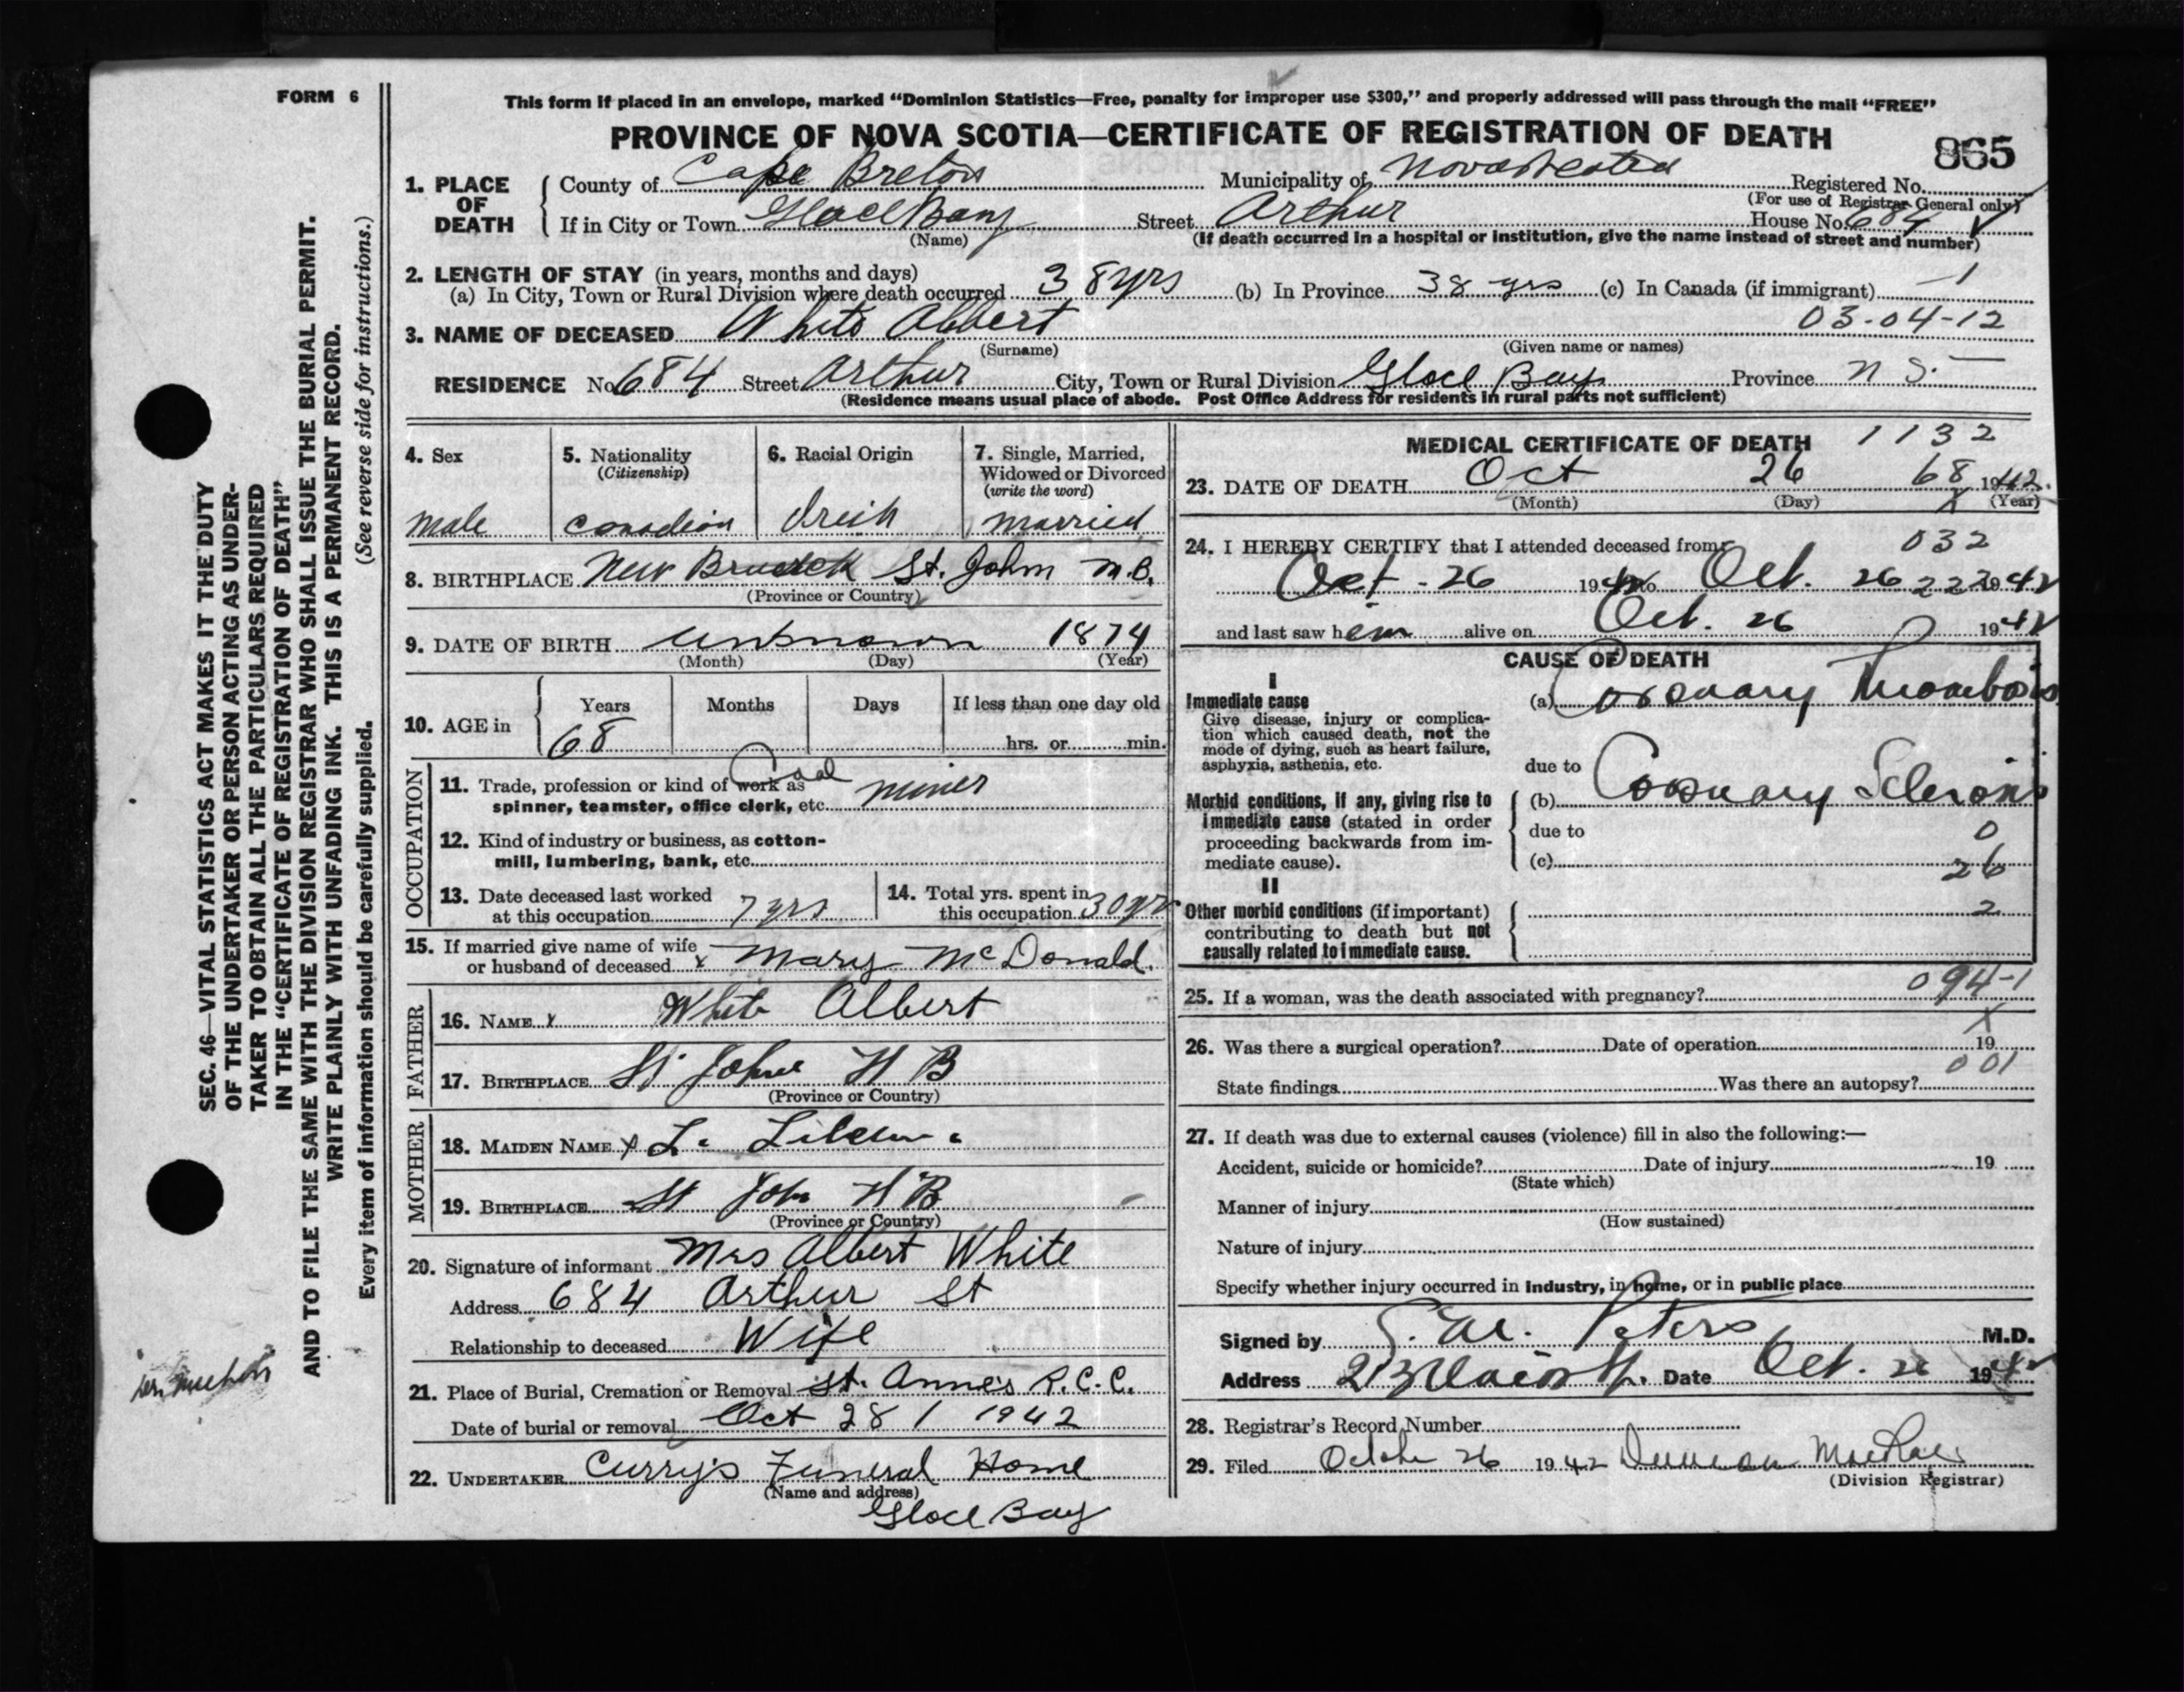 FORM 6
This form if placed in an envelope, marked "Dominion Statistics—Free, penalty for improper use $300," and properly addressed will pass through the mail "FREE"
PROVINCE OF NOVA SCOTIA—CERTIFICATE OF REGISTRATION OF DEATH
865
1. PLACE OF DEATH
County of Cape Breton Municipality of Nova Scotia Registered No.
(For use of Registrar General only)
If in City or Town Glace Bay Street Arthur House No. 684
(Name) (If death occurred in a hospital or institution, give the name instead of street and number)
2. LENGTH OF STAY (in years, months and days)
(a) In City, Town or Rural Division where death occurred 38 yrs (b) In Province 38 yrs (c) In Canada (if immigrant) 1
3. NAME OF DECEASED White Albert 03-04-12
(Surname) (Given name or names)
RESIDENCE No 684 Street Arthur City, Town or Rural Division Glace Bay Province N S.
(Residence means usual place of abode. Post Office Address for residents in rural parts not sufficient)
4. Sex
male
5. Nationality
(Citizenship)
Canadian
6. Racial Origin
Irish
7. Single, Married, Widowed or Divorced
(write the word)
married
8. BIRTHPLACE New St. John N.B.
(Province or Country)
9. DATE OF BIRTH unknown 1874
(Month) (Day) (Year)
10. AGE in
Years Months Days If less than one day old
68 hrs. or min.
OCCUPATION
11. Trade, profession or kind of work as
spinner, teamster, office clerk, etc. Coal miner
12. Kind of industry or business, as cotton-
mill, lumbering, bank, etc.
13. Date deceased last worked
at this occupation 7 yrs
14. Total yrs. spent in
this occupation 30 yrs
15. If married give name of wife
or husband of deceased x Mary McDonald.
FATHER
16. NAME x White Albert
17. BIRTHPLACE St John N B
(Province or Country)
MOTHER
18. MAIDEN NAME x L.
19. BIRTHPLACE St John N B
(Province or Country)
20. Signature of informant Mrs Albert White
Address 684 Arthur St
Relationship to deceased Wife
21. Place of Burial, Cremation or Removal St. Anne's R.C.C.
Date of burial or removal Oct 28 / 1942
22. UNDERTAKER Curry's Funeral Home
(Name and address)
Glace Bay
MEDICAL CERTIFICATE OF DEATH 1132
23. DATE OF DEATH Oct 26 68 1942.
(Month) (Day) (Year)
x
24. I HEREBY CERTIFY that I attended deceased from 032
Oct - 26 1942 to Oct. 26 222 1942
and last saw him alive on Oct. 26 1942
CAUSE OF DEATH
I
Immediate cause
Give disease, injury or complica-
tion which caused death, not the
mode of dying, such as heart failure,
asphyxia, asthenia, etc.
(a) Coronary Thrombosis
due to
Morbid conditions, if any, giving rise to
immediate cause (stated in order
proceeding backwards from im-
mediate cause).
(b) Coronary Sclerosis
due to 0
(c) 26
II
Other morbid conditions (if important)
contributing to death but not
causally related to immediate cause.
2
25. If a woman, was the death associated with pregnancy? 094-1
x
26. Was there a surgical operation? Date of operation 19
001
State findings Was there an autopsy?
27. If death was due to external causes (violence) fill in also the following:—
Accident, suicide or homicide? Date of injury 19
(State which)
Manner of injury
(How sustained)
Nature of injury
Specify whether injury occurred in industry, in home, or in public place
Signed by Peters M.D.
Address Date Oct. 26 1942
28. Registrar's Record Number
29. Filed October 26 1942 Duncan MacRae
(Division Registrar)
SEC. 46—VITAL STATISTICS ACT MAKES IT THE DUTY
OF THE UNDERTAKER OR PERSON ACTING AS UNDER-
TAKER TO OBTAIN ALL THE PARTICULARS REQUIRED
IN THE "CERTIFICATE OF REGISTRATION OF DEATH"
AND TO FILE THE SAME WITH THE DIVISION REGISTRAR WHO SHALL ISSUE THE BURIAL PERMIT.
WRITE PLAINLY WITH UNFADING INK. THIS IS A PERMANENT RECORD.
Every item of information should be carefully supplied. (See reverse side for instructions.)